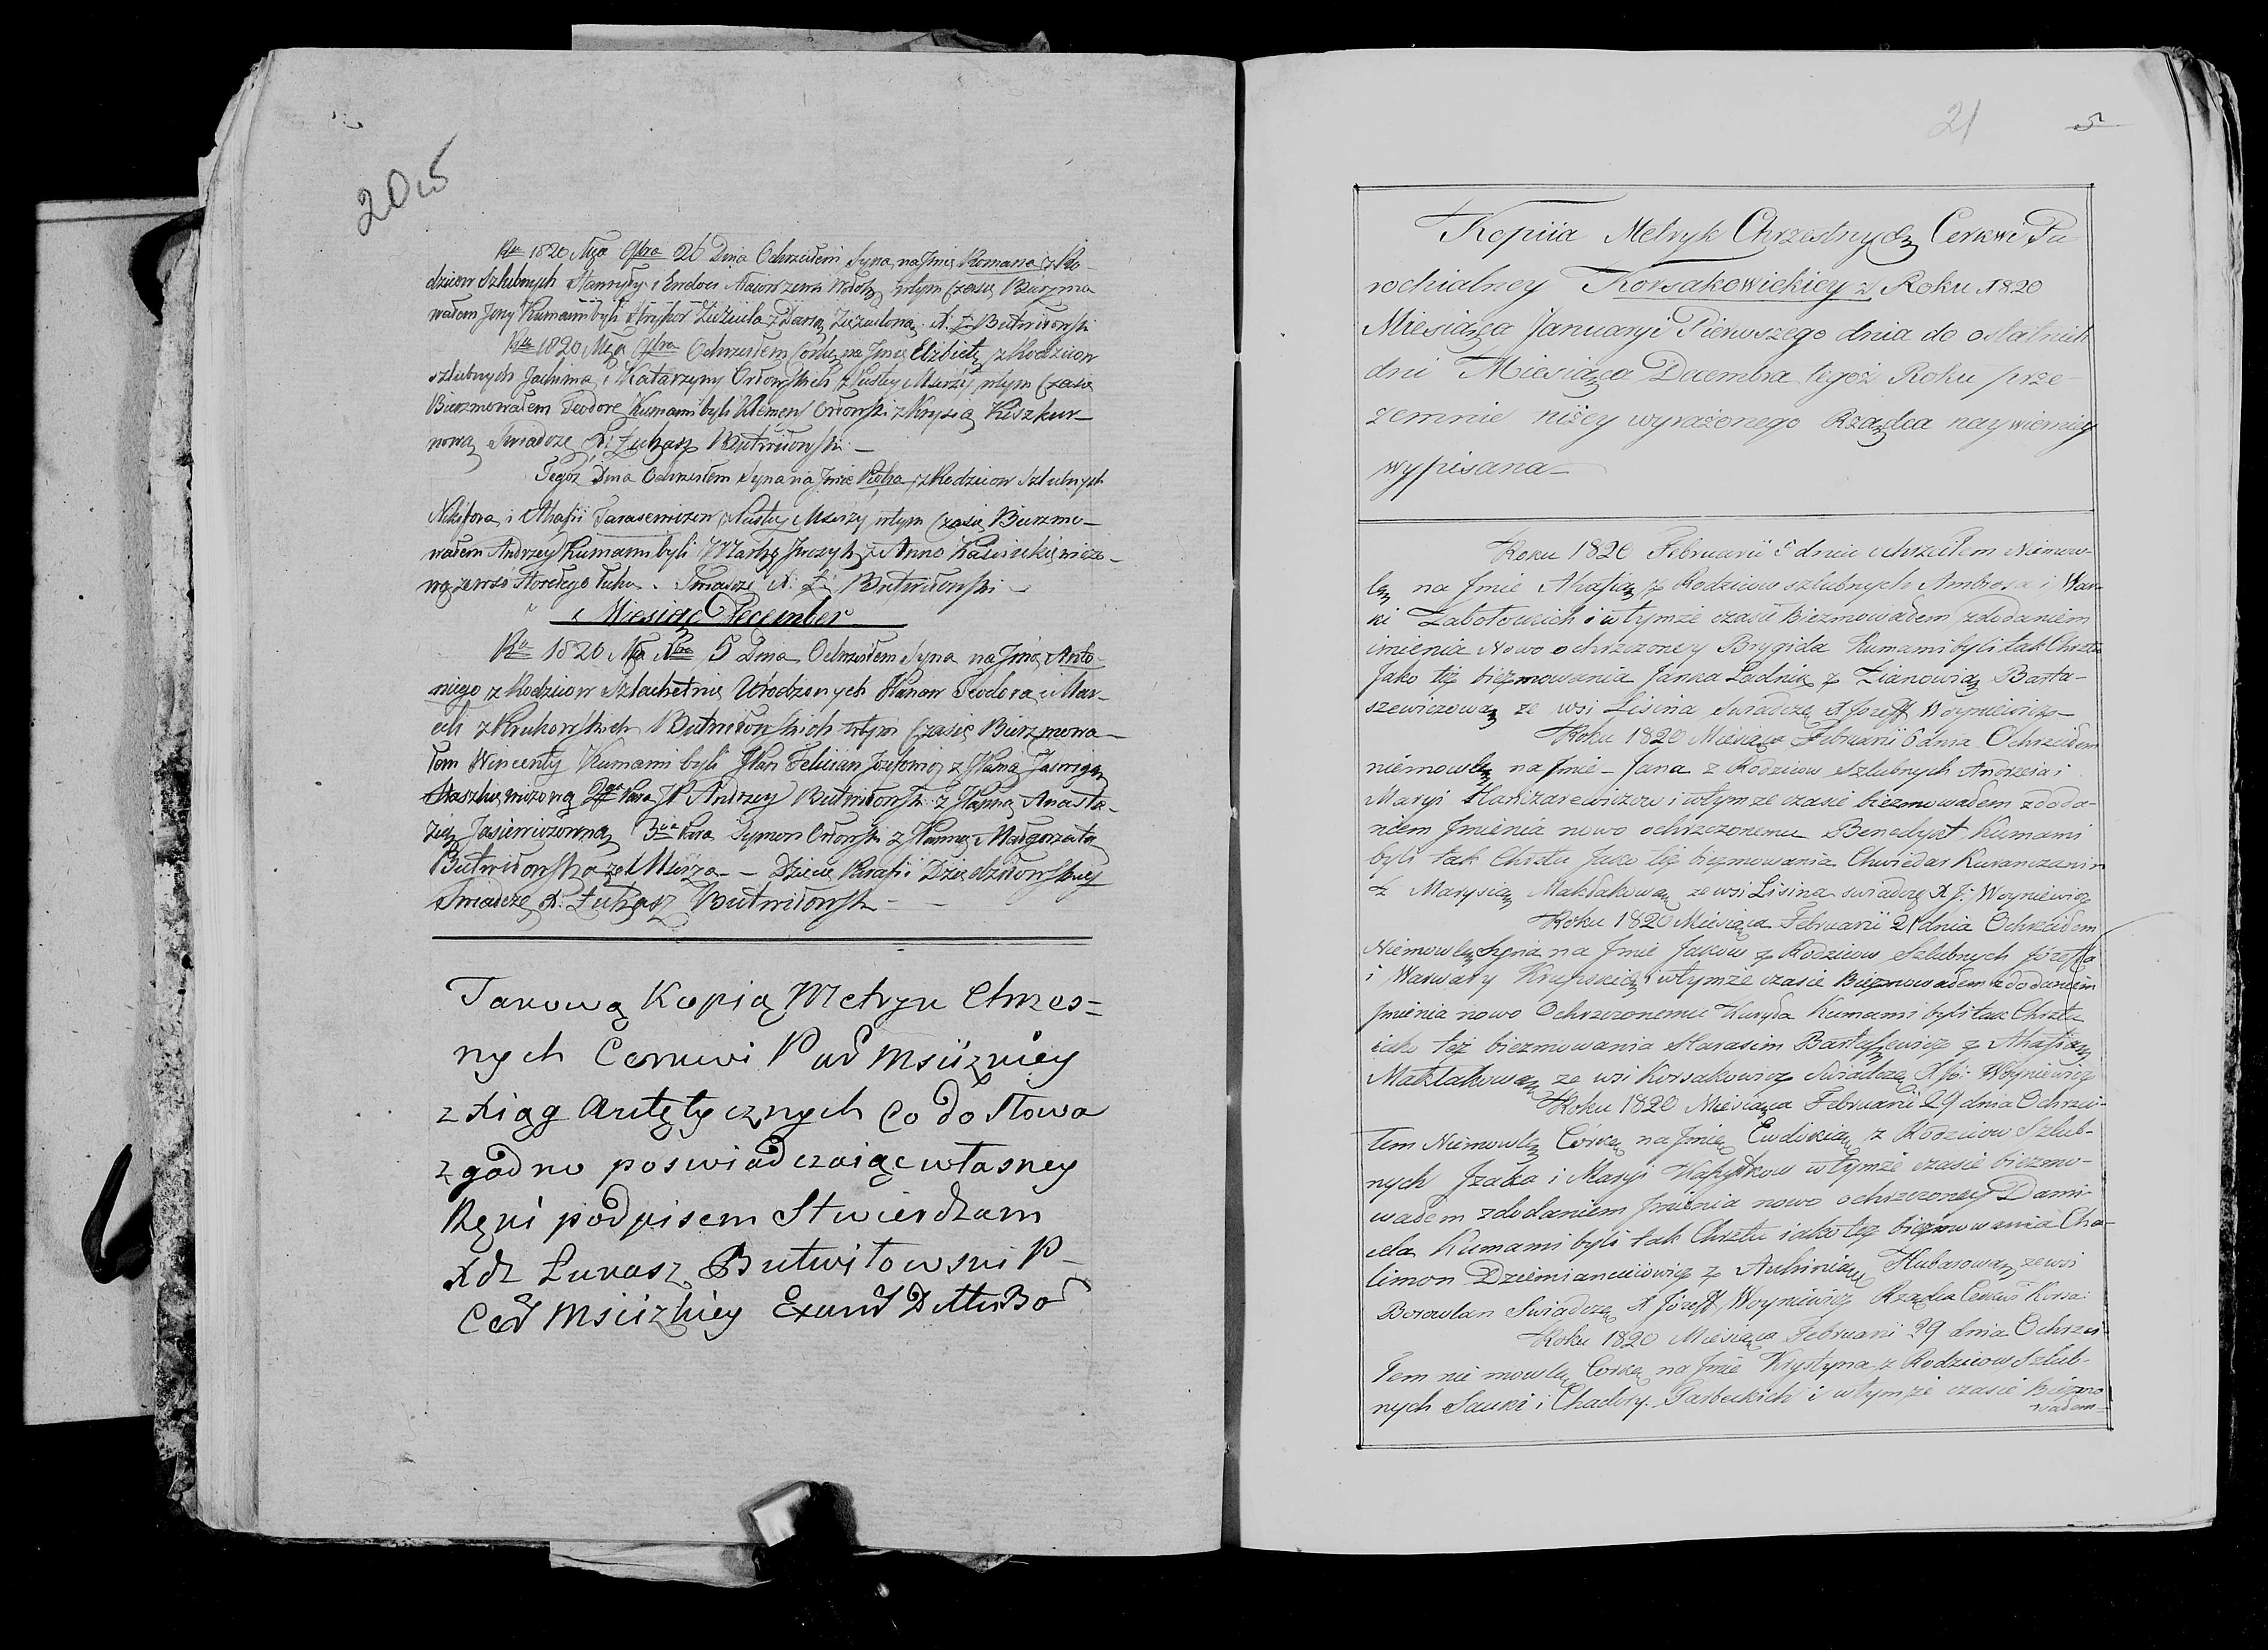 20 об
Ru 1820 Mca 9bra 26 Dnia Ochrzciłem Syna na Jmie Romana z Ro-
dzicow Szlubnych i Ewdoci wtym Czasie Bierzmo
wałem Jerzy Kumami byli z Darią X. Ł. Butwiłowski
Ru 1820 Mca 9bra Ochrzciłem Corkę na Jmie Elżbietę z Rodzicow
szlubnych Jachima i Katarzyny Orłowskich z Pustey Mscizy wtym Czasie
Bierzmowałem Teodorę Kumami byli Klemens Orłowski z Krysią Kiszkur-
nową Swiadczę X: Łukasz Butwiłowski –
Tegoż Dnia Ochrzciłem Syna na Jmie z Rodzicow Szlubnych
Nikifora i Ahafii Tarasewiczow z Pustey Mscizy wtym Czasie Bierzmo-
wałem Andrzey Kumami byli z Anno
ną zewsi Swiadczę X: Ł: Butwiłowski –
Miesiąc December
Ru 1820 Mca Xbra 5 Dnia Ochrzciłem Syna na Jmie Anto-
niego z Rodzicow Szlachetnie Urodzonych Panow Teodora i Mar-
eli z Krukowskich Butwiłowskich wtym Czasie Bierzmowa-
łem Wincenty Kumami byli Pan Felician z Panną
2ga Para JP Andrzey Butwiłowski z Panną Anasta-
zią Jasiewiczowną 3cia Para Symon Orłowski z Panną Małgorzatą
Butwiłowską ze Msciza – Dziecie Parafii
Swiadczę X: Łukasz Butwiłowski –
Takową Kopią Metryk Chrzes=
nych Cerkwi Par Msciżkiey
z Xiąg Autętycznych Co do Słowa
zgodno poswiadczaiąc własney
Ręki podpisem Stwierdzam
Xdz Łukasz Butwiłowski P-
Cer Msciżkiey
21 5
Kopiia Metryk Chrzestnych Cerkwi Pa
rochialney Korsakowickiey z Roku 1820
Miesiąca Januaryi Pierwszego dnia do ostatnich
dni Miesiąca Decembra tegoż Roku prze-
zemnie niżey wyrażonego Rządca naywierniey
wypisana –
Roku 1820 Februarii dnia ochrzciłem Niemow-
lę na Jmie Ahafią z Rodzicow szlubnych Ambroża i War-
ki Zabołowich i wtymże czasie Biezmowałem zdodaniem
imienia Nowo ochrzczoney Brygida Kumami byli tak Chrztu
Jako też biezmowania Janka Ładnik z Barta-
szewiczową ze wsi Lisina Swiadczę X Jozeff Woyniewicz –
Roku 1820 Miesiąca Februarii 6 dnia Ochrzciłem
niemowlę na Jmie – Jana z Rodzicow Szlubnych Andrzeia i
Maryi i wtymze czasie biezmowałem zdoda-
niem Jmienia nowo ochrzczonemu Benedykt Kumami
byli tak Chrztu Jako też biezmowania Chwiedar
z Marysią Makłakową ze wsi Lisina swiadczę X J: Woyniewicz
Roku 1820 Miesiąca Februarii 21 dnia Ochrzciłem
Niemowlę Syna na Jmie Jakow z Rodzicow Szlubnych Józeffa
i Warwary Krupskich i wtymże czasie Biezmowałem zdodaniem
Jmienia nowo Ochrzczonemu Kumami byli tak Chrztu
iako też biezmowania Harasim Bartaszewicz z Ahafią
Makłakową ze wsi Korsakowicz Swiadczę X Jo: Woyniewicz
Roku 1820 Miesiąca Februarii 29 dnia Ochrzci-
łem Niemowlę Córkę na Jmie Ewdokią z Rodzicow Szlub-
nych Jzaka i Maryi wtymże czasie biezmo-
wałem zdodaniem Jmienia nowo ochrzczoney Dami-
ela Kumami byli tak Chrztu iako też biezmowania Cha-
limon z Hubarową ze wsi
Borowlan Swiadczę X Józeff Woyniewicz Rządca Cerkwi Korsa:
Roku 1820 Miesiąca Februarii 29 dnia Ochrzci-
łem niemowlę Corkę na Jmie Krystyna z Rodzicow Szlub-
nych Sauki i Chadory Garbuckich i wtymże czasie biezmo
wałem –